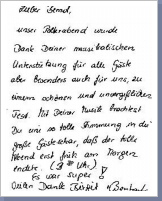 Lieber Bernd,
unser Polterabend wurde
Dank Deiner musikalischen
Unterstützung für alle Gäste
aber besonders auch für uns, zu
einem schönen und unvergeßlichen
Fest. Mit Deiner Musik brachtest
Du eine so tolle Stimmung in die
große Gästeschar, daß der tolle
Abend erst früh am Morgen
endete. (3 Uhr)
Es war super!
Vielen Dank